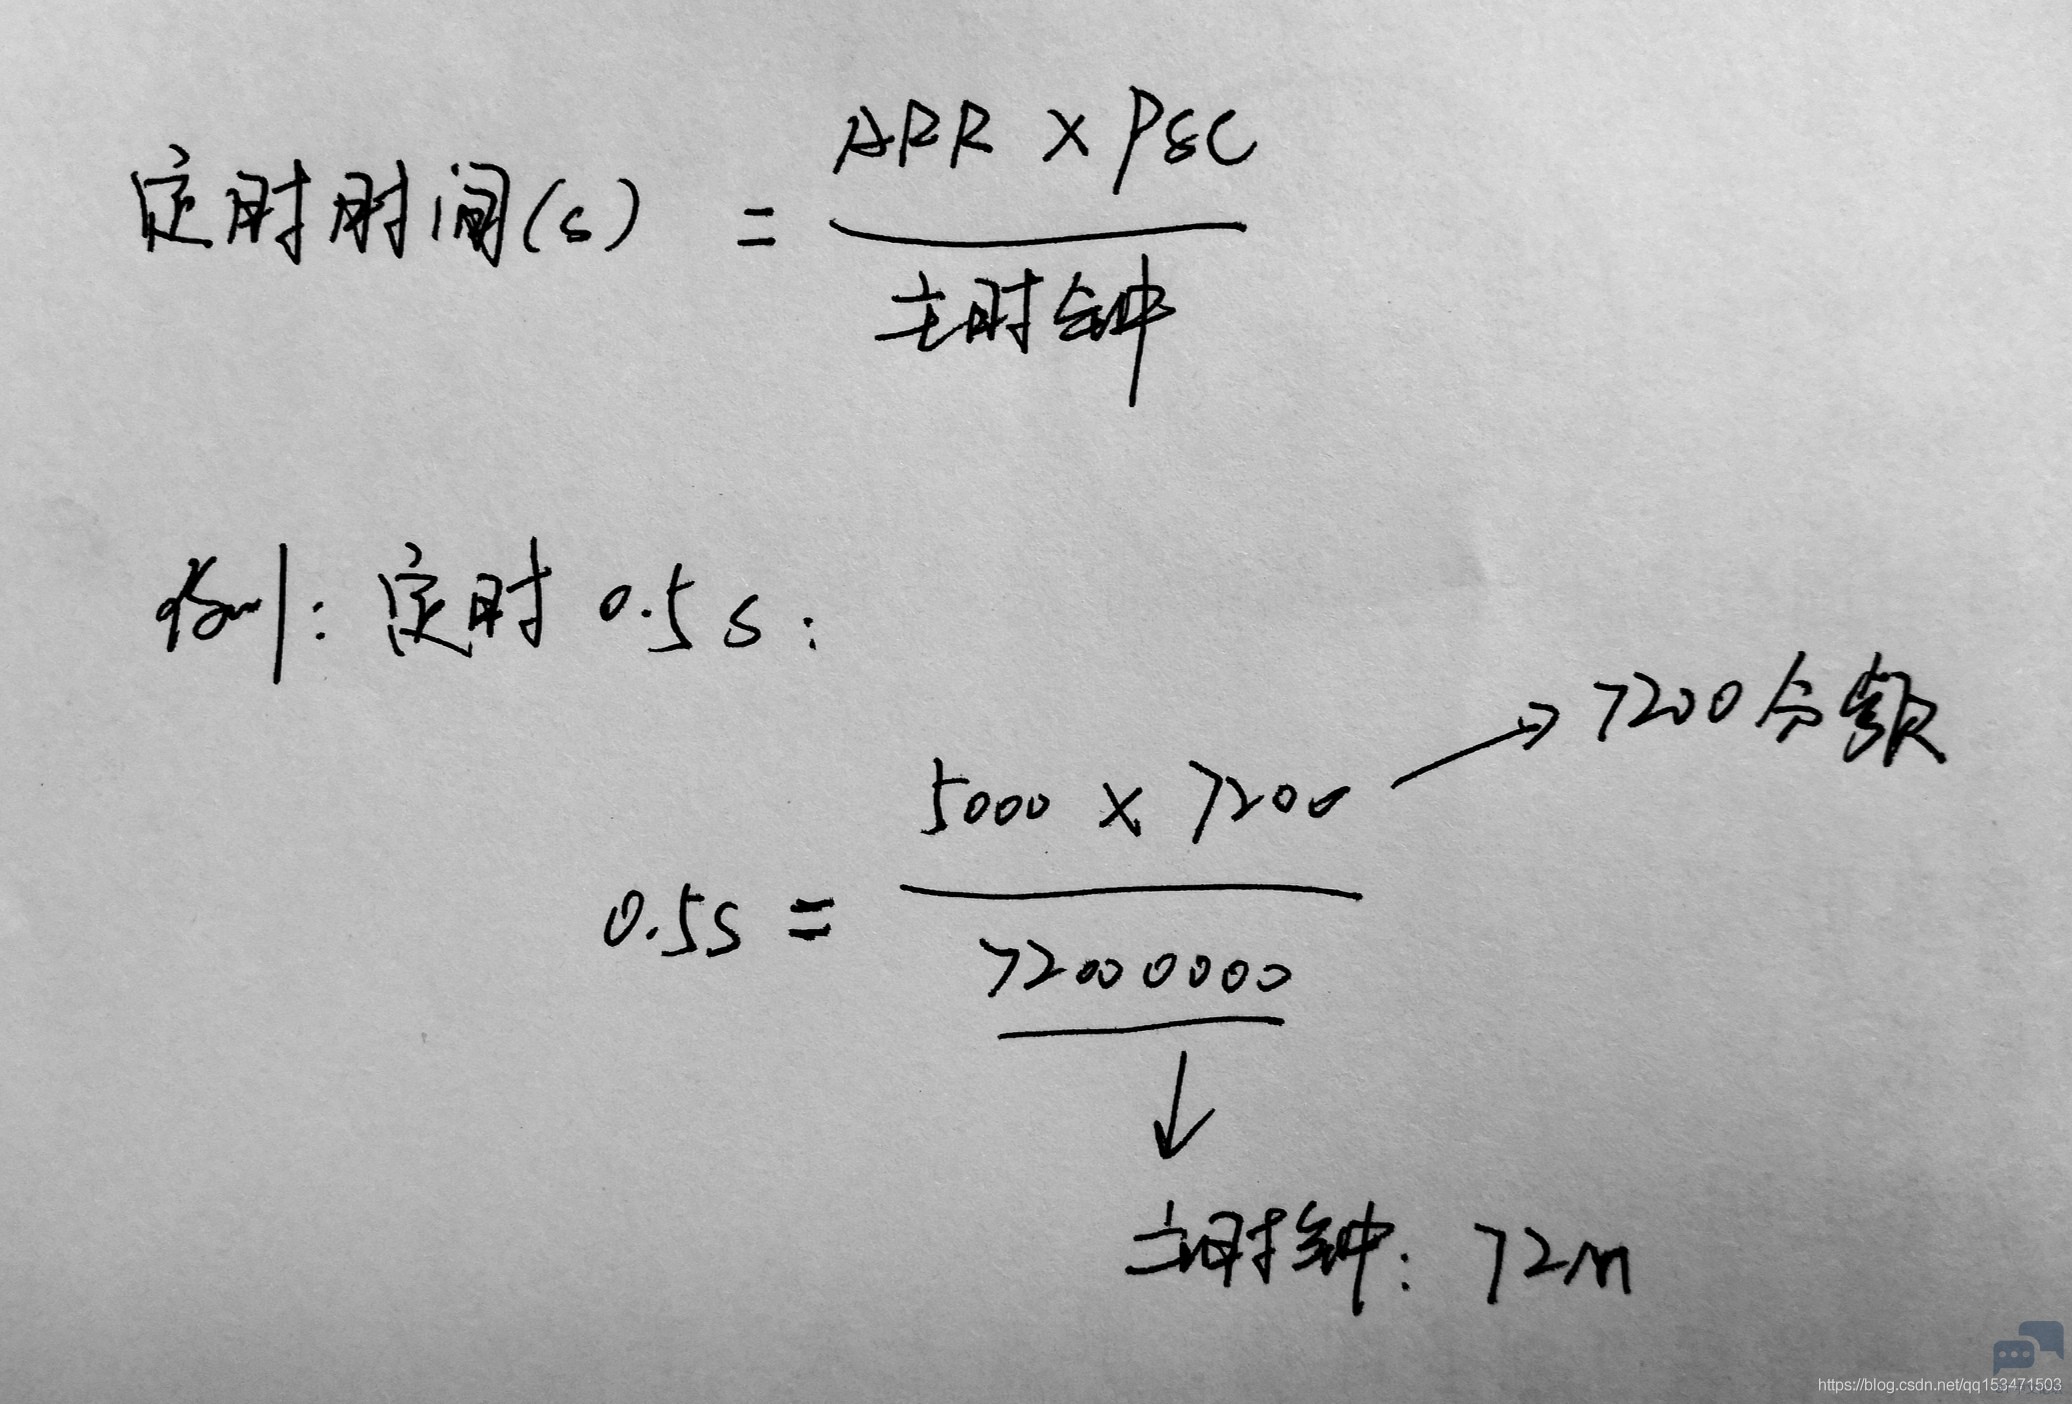 ARR × PSC
定时时间(s) =
主时钟
例: 定时 0.5s:
7200分频
5000 × 7200
0.5s =
72000000
主时钟: 72M
https://blog.csdn.net/qq153471503